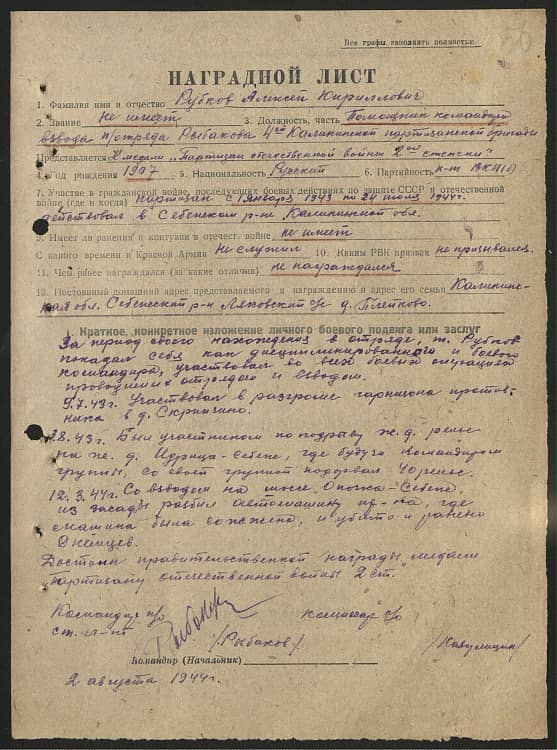 Все графы заполнять полностью.
НАГРАДНОЙ ЛИСТ
1. Фамилия имя и отчество Рубков Алексей Кириллович
2. Звание не имеет 3. Должность, часть Помощник командира
взвода п/отряда Рыбакова 4ой Калининской партизанской бригады
Представляется К медали "Партизан отечественной войны 2ой степени"
4. Год рождения 1907 5. Национальность Русский 6. Партийность к-т ВКП(б)
7. Участие в гражданской войне, последующих боевых действиях по защите СССР и отечественной
войне (где и когда) партизан с 1 января 1943 по 24 июля 1944г.
действовал в Себежском р-не Калининской обл.
8. Имеет ли ранения и контузии в отечест. войне не имеет
9. С какого времени в Красной Армии не служил 10. Каким РВК призван не призывалец
11. Чем ранее награждался (за какие отличия) не награждался
12. Постоянный домашний адрес представляемого к награждению и адрес его семьи Калинин-
ская обл. Себежский р-н Ляховский с/с д.
Краткое, конкретное изложение личного боевого подвига или заслуг
За период своего нахождения в отряде, т. Рубков
показал себя как дисциплинированного и боевого
командира, участвовал во всех боевых операциях
проводимых отрядом и взводом.
9.7.43г. Участвовал в разгроме гарнизона против-
ника в д.
8.43г. Был участником по подрыву ж.д. рельс
на ж.д. Идрица-Себеж, где будучи командиром
группы, со своей группой подорвал 40 рельс.
12.3.44г. Со взводом на шоссе Опочка-Себеж,
из засады разбил автомашину пр-ка, где
машина была сожжена, и убито и ранено
немцев.
Достоин правительственной награды медали
"партизану отечественной войны 2 ст."
Командир п/о комиссар п/о
ст. л-нт /Рыбаков/
Командир (Начальник)
2 августа 1944г.